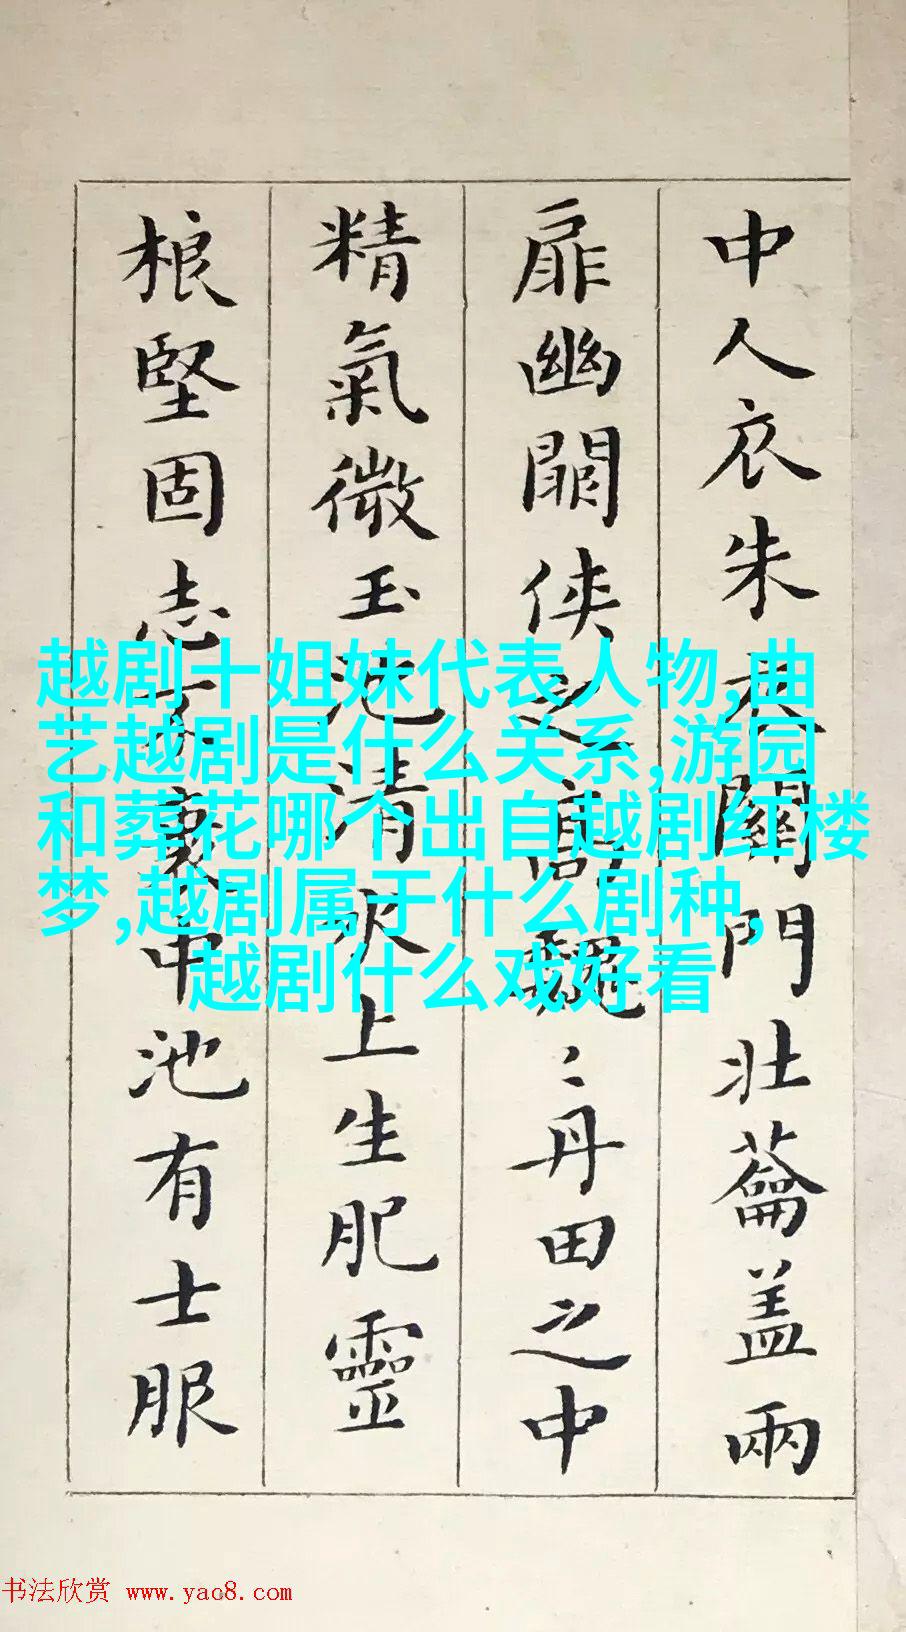 中人衣朱衣關門壯蘥盖兩
扉幽闕俠之高巍〻丹田之中
精氣微玉池清水上生肥靈
根堅固志不衰中池有士服
越剧十姐妹代表人物,曲
艺越剧是什么关系,游园
和葬花哪个出自越剧红楼
梦,越剧属于什么剧种,
越剧什么戏好看
书法欣赏 www.yac8.com